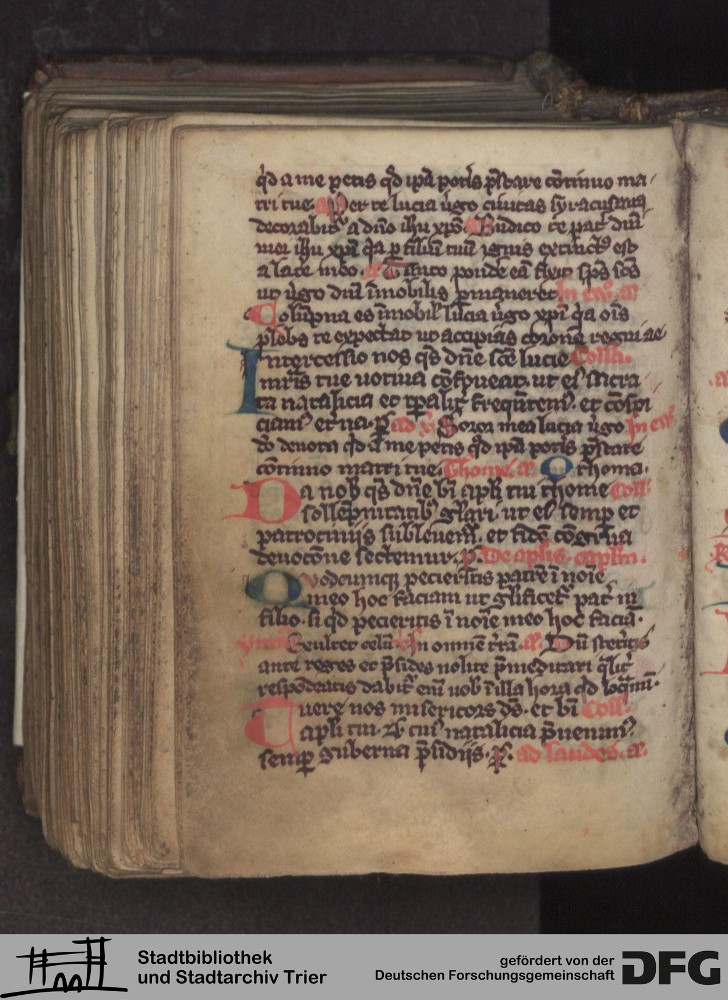 qd a me petis qd ipa potis pstare continuo ma
tri tue. Per te lucia ugo ciuitas syracusana
decorabit a dno ihu xpo. Budico te pat dni
mei ihu xpi qa p filiu tuu ignis extinctus est
a late meo. a Tanto pondere ea fixit sps scs
ut ugo dni imobilis pmaneret In eu. a
Columpna es imobil lucia ugo xpi qa ois
plebs te expectat ut accipias corona regni ae
Intercessio nos qs dne sce lucie Colla.
mris tue uotiua confoueat. ut ei sacra
ta natalicia et tpalit frequtem. et conspi
ciam etna. p ad Soror mea lucia ugo In eu
do deuota qd a me petis qd ipa potis pstare
continuo matri tue. Thome. a O thoma.
Da nob qs dne bi apli tui thome Coll
sollepnitatib glari. ut ei semp et
patrociniis subleuem. et fide congrua
deuocone sectemur. p. De aplis. capln.
Quodcumq pecieritis patre i noie
meo hoc faciam ut glificet pat in
filio. si qd pecieritis i noie meo hoc facia.
Exultet celu In omne tra. a. Du steritis
ante reges et psides nolite pmeditari qlit
respondeatis dabit eni uob i illa hora qd loqmi.
Tuere nos misericors ds. et bi Coll.
apli tui. N. cui natalicia puenim
semp guberna psidiis. p. ad laudes. a.
Stadtbibliothek
und Stadtarchiv Trier
gefördert von der
Deutschen Forschungsgemeinschaft
DFG